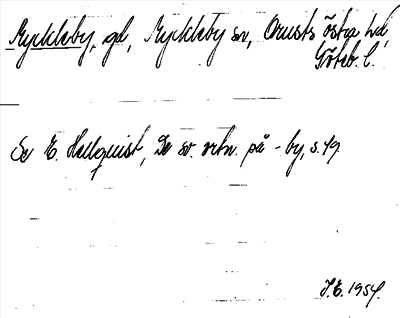 Myckleby, gd, Myckleby sn, Orusts östra hd,
Göteb. l.
Se E. Hellquist, De sv. ortn. på -by, s. 19
J.E. 1954.